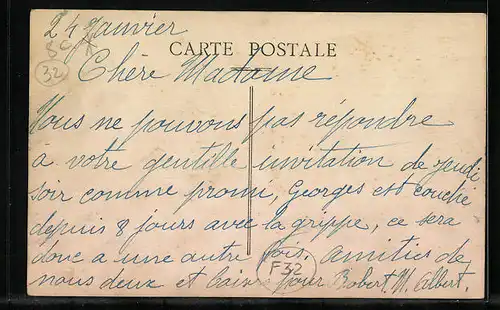 24 Janvier
CARTE POSTALE
32
Chère Madame
Nous ne pouvons pas répondre
à votre gentille invitation de jeudi
soir comme promi, Georges est couché
depuis 8 jours avec la grippe, ce sera
donc a une autre fois. amitiés de
nous deux et baisers pour Robert. M. Albert.
F32